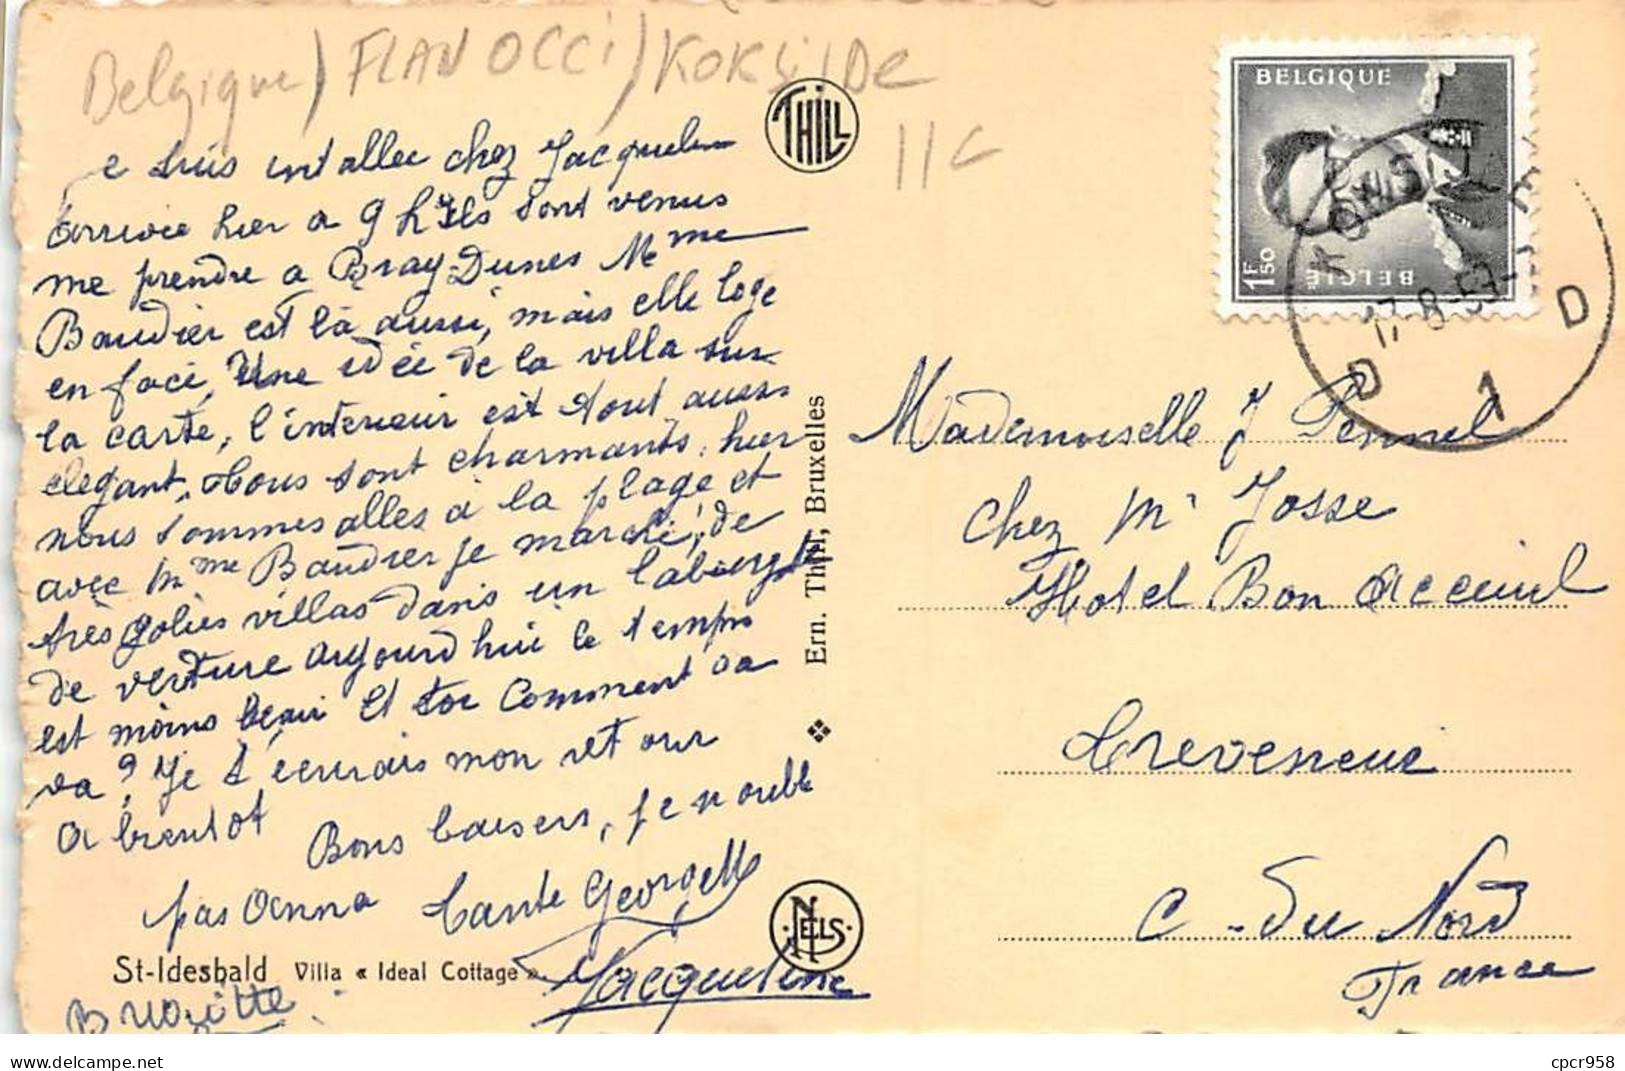 Belgique) FLAN OCCI / KOKSIJDE
THILL
11 C
Je suis intallee chez Jacqueline
arrivée hier a 9 h Ils sont venus
me prendre a Bray-Dunes Mme
Baudier est là aussi, mais elle loge
en face, Une idée de la villa sur
la carte, l'interieur est tout aussi
elegant, Tous sont charmants, hier
nous sommes alles à la plage et
avec Mme Baudier je marche, de
très jolies villas dans un labirynte
de verture aujourd hui le temps
est moins beau Et toi Comment va
va? Je t'ecurais mon retour
a bientot
Bons baisers, je n oublie
pas Anna Tante Georgette
Jacqueline
Brigitte
St-Idesbald Villa « Ideal Cottage ».
NELS
Ern. Thill, Bruxelles
BELGIQUE
BELGIË
1F50
17-8-53
D 1 D
Mademoiselle J Pennel
chez Mr Josse
Hotel Bon Acceuil
Treveneuc
C - du Nord
France
Delcampe.net
cpcr958